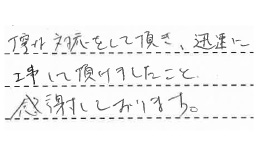 丁寧な対応をして頂き、迅速に
工事して頂けましたこと
感謝しております。